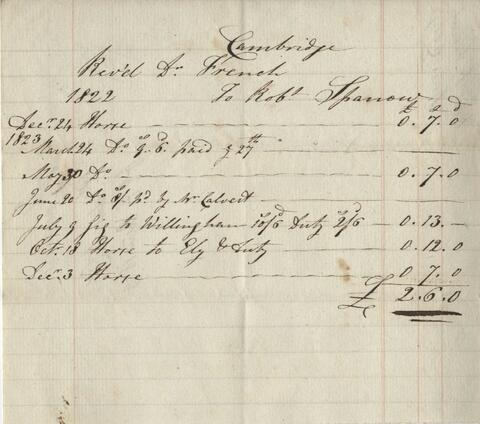 Cambridge
Rev'd Dr. French
1822 To Robt Sparrow
£ s d
Decr. 24 Horse 0. 7. 0
1823
March 24 Do 9s. 6d paid 27th
May 30 Do 0. 7. 0
June 20 Do pd by Mr Calvert
July 9 Gig to Willingham 10s/6d Duty 2s/6 0. 13.
Oct. 13 Horse to Ely & Duty 0. 12. 0
Decr. 3 Horse 0 7. 0
£ 2. 6. 0